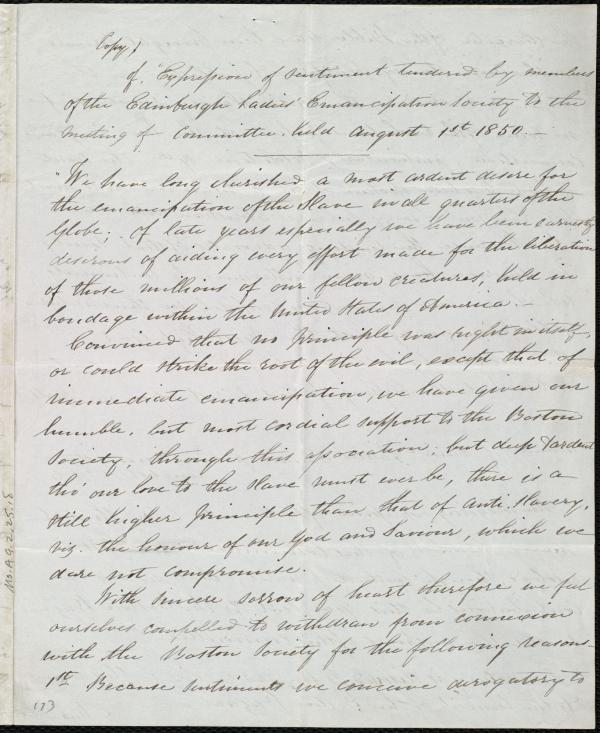 Copy,
of, "Expression of sentiment tendered by members
of the Edinburgh Ladies' Emancipation Society to the
meeting of Committee. held August 1st 1850.—
"We have long cherished a most ardent desire for
the emancipation of the Slave in all quarters of the
Globe; of late years especially we have been earnestly
desirous of aiding every effort made for the liberation
of those millions of our fellow creatures, held in
bondage within the United States of America.—
Convinced that no principle was right in itself,
or could strike the root of the evil, except that of
immediate emancipation, we have given our
humble, but most cordial support to the Boston
Society, through this association; but deep & ardent
tho' our love to the slave must ever be, there is a
still higher principle than that of Anti Slavery,
viz. the honour of our God and Saviour, which we
dare not compromise.
With sincere sorrow of heart therefore we feel
ourselves compelled to withdraw from connexion
with the Boston Society for the following reasons—
1st Because sentiments we conceive derogatory to
173
Ms.A.9.2.25.15